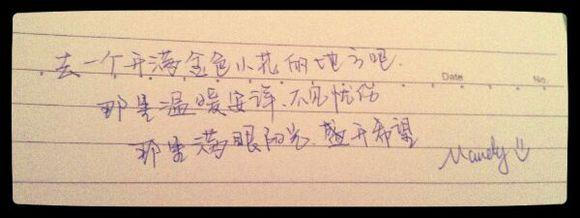 去一个开满金色小花的地方吧.
Date No.
那里温暖安详.不见忧伤
那里满眼阳光.盛开希望
Mandy